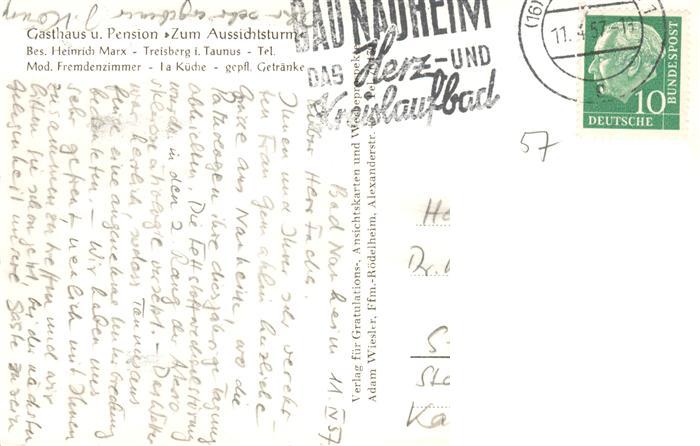 Ihr sehr ergebener J. König
Gasthaus u. Pension »Zum Aussichtsturm«
Bes. Heinrich Marx - Treisberg i. Taunus - Tel.
Mod. Fremdenzimmer - 1a Küche - gepfl. Getränke
BAD NAUHEIM
DAS Herz- UND
Kreislaufbad
(16)
11. 4. 57-17
c
DEUTSCHE
BUNDESPOST
10
57
Verlag für Gratulations-, Ansichtskarten und Werbeprospekte
Adam Wiesler, Ffm.-Rödelheim, Alexanderstr.
Bad Nauheim 11.IV 57.
Lieber Herr Fuchs,
Ihnen und Ihrer sehr verehr-
ten Frau Gemahlin herzliche
Grüsse aus Nauheim, wo die
Pathologen ihre diesjährige Tagung
abhielten. Die Fettstoffwechselstörung
wurde in den 2. Rang der
versetzt. - Das Wetter
war herrlich, sodass Taunus
eine angenehme Unterbrechung
bedeuteten. - Wir haben uns
sehr gefreut, neulich mit Ihnen
zusammenzutreffen und wir
bitten Sie schon jetzt, bei der nächsten
Gelegenheit unsere Gäste zu sein
He
Dr.
S
Sta
Ka